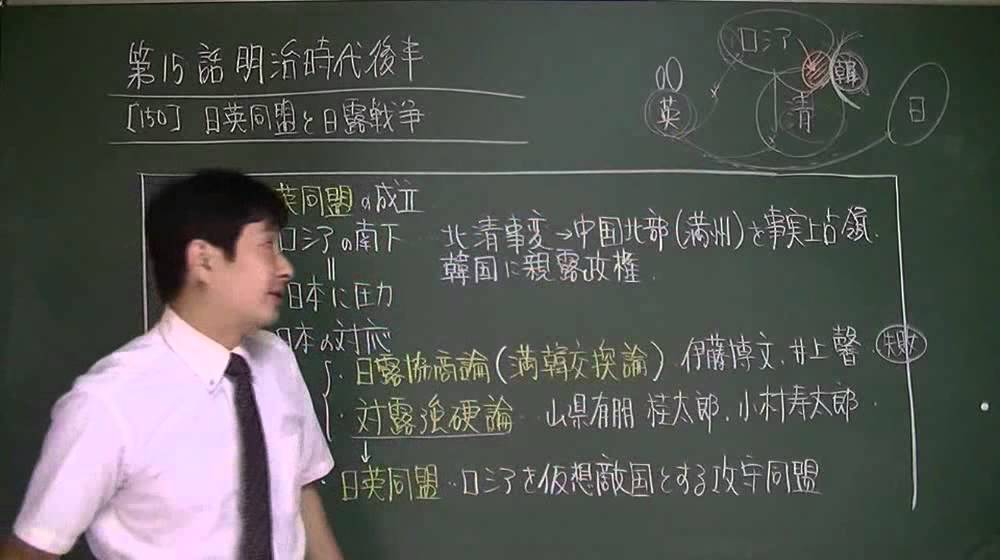 第15話 明治時代後半
[150] 日英同盟と日露戦争
ロシア
韓
英
清
日
英同盟の成立
ロシアの南下 北清事変→中国北部(満州)を事実上占領.
韓国に親露政権.
日本に圧力
日本の対応
・日露協商論(満韓交換論) 伊藤博文.井上馨. 失敗
・対露強硬論・山県有朋 桂太郎.小村寿太郎.
日英同盟・ロシアを仮想敵国とする攻守同盟